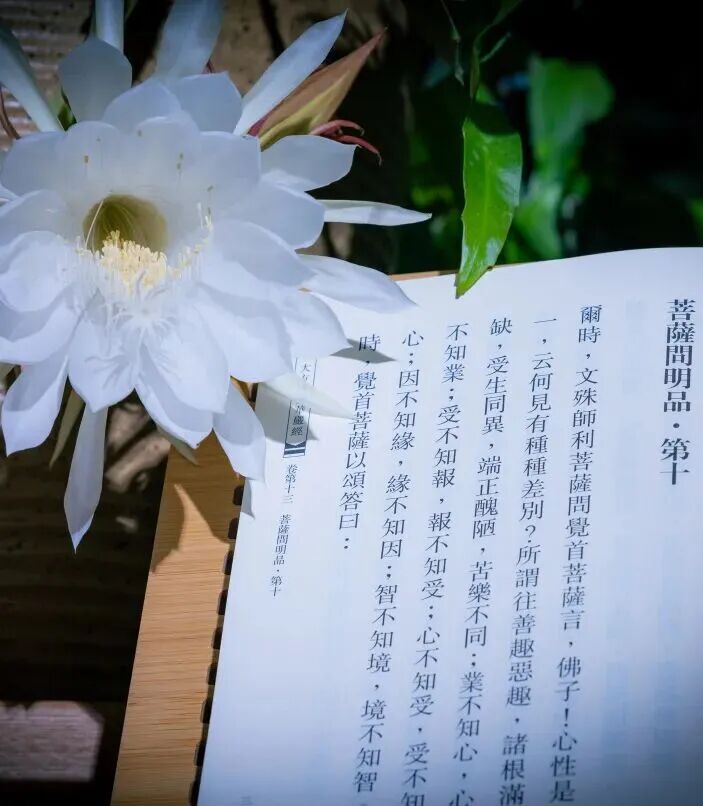 菩薩問明品·第十
爾時，文殊師利菩薩問覺首菩薩言，佛子！心性是
一，云何見有種種差別？所謂往善趣惡趣，諸根滿
缺，受生同異，端正醜陋，苦樂不同；業不知心，心
不知業；受不知報，報不知受；心不知受，受不知
心；因不知緣，緣不知因；智不知境，境不知智。
時，覺首菩薩以頌答曰：
大 華嚴經
卷第十三 菩薩問明品·第十